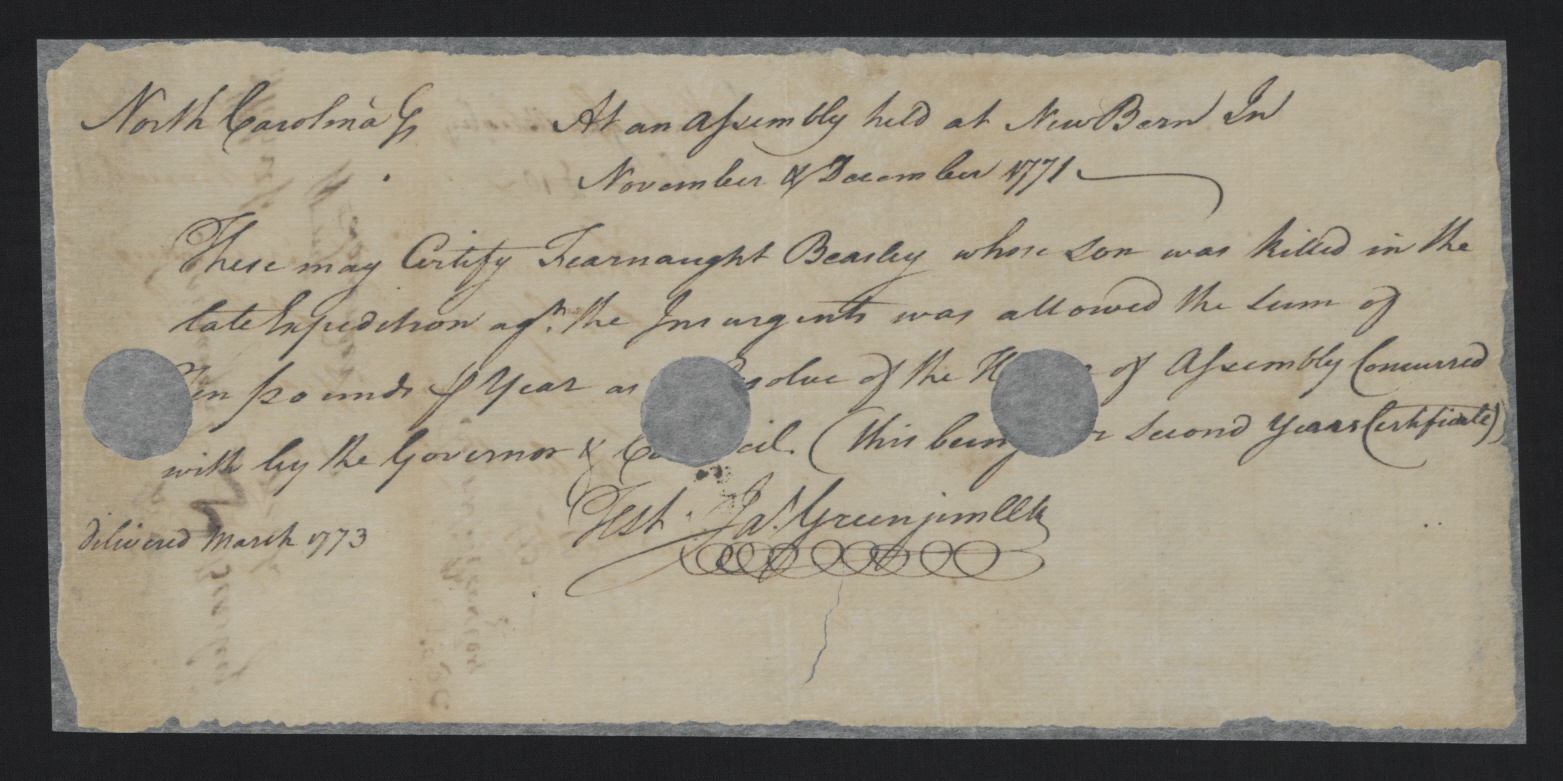 North Carolina Ss At an Assembly held at New Bern In
November & December 1771
These may Certify Fearnaught Beasley whose Son was killed in the
late Expedition agt. the Insurgents was allowed the Sum of
Ten pounds ℘ Year as solve of the H of Assembly Concurred
with by the Governor & Co cil. (this being r Second Years Certificate)
Test. Jas. Green jun Clk
delivered March 1773